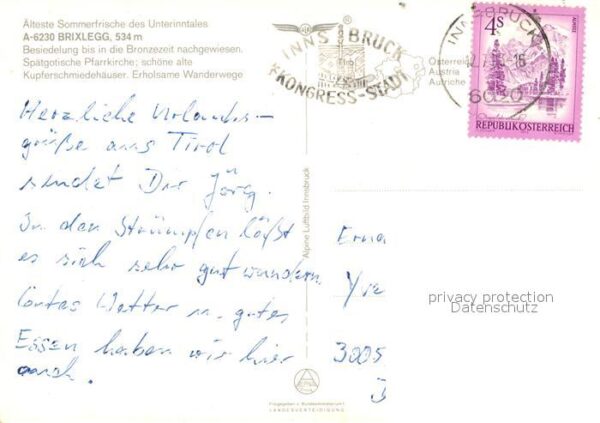 Älteste Sommerfrische des Unterinntales
A-6230 BRIXLEGG, 534 m
Besiedelung bis in die Bronzezeit nachgewiesen.
Spätgotische Pfarrkirche; schöne alte
Kupferschmiedehäuser. Erholsame Wanderwege
INNSBRUCK
KONGRESS-STADT
Österreich
Austria
Autriche
INNSBRUCK
6020
4S
REPUBLIK ÖSTERREICH
Herzliche Urlaubs-
grüße aus Tirol
sendet Dir Jörg.
In den Strümpfen läßt
es sich sehr gut wandern.
Wetter u. gutes
Essen haben wir hier
auch.
Alpine Luftbild Innsbruck
Erna
3005
privacy protection
Datenschutz
Freigegeben v. Bundesministerium f.
LANDESVERTEIDIGUNG